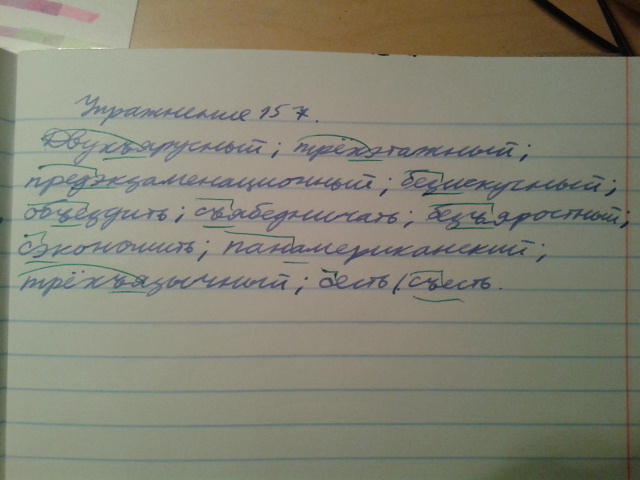 Упражнение 157.
Двухъярусный; трёхэтажный;
предэкзаменационный; безискусный;
объездить; съябедничать; безъяростный;
сэкономить; панамериканский;
трёхъязычный; есть/съесть.